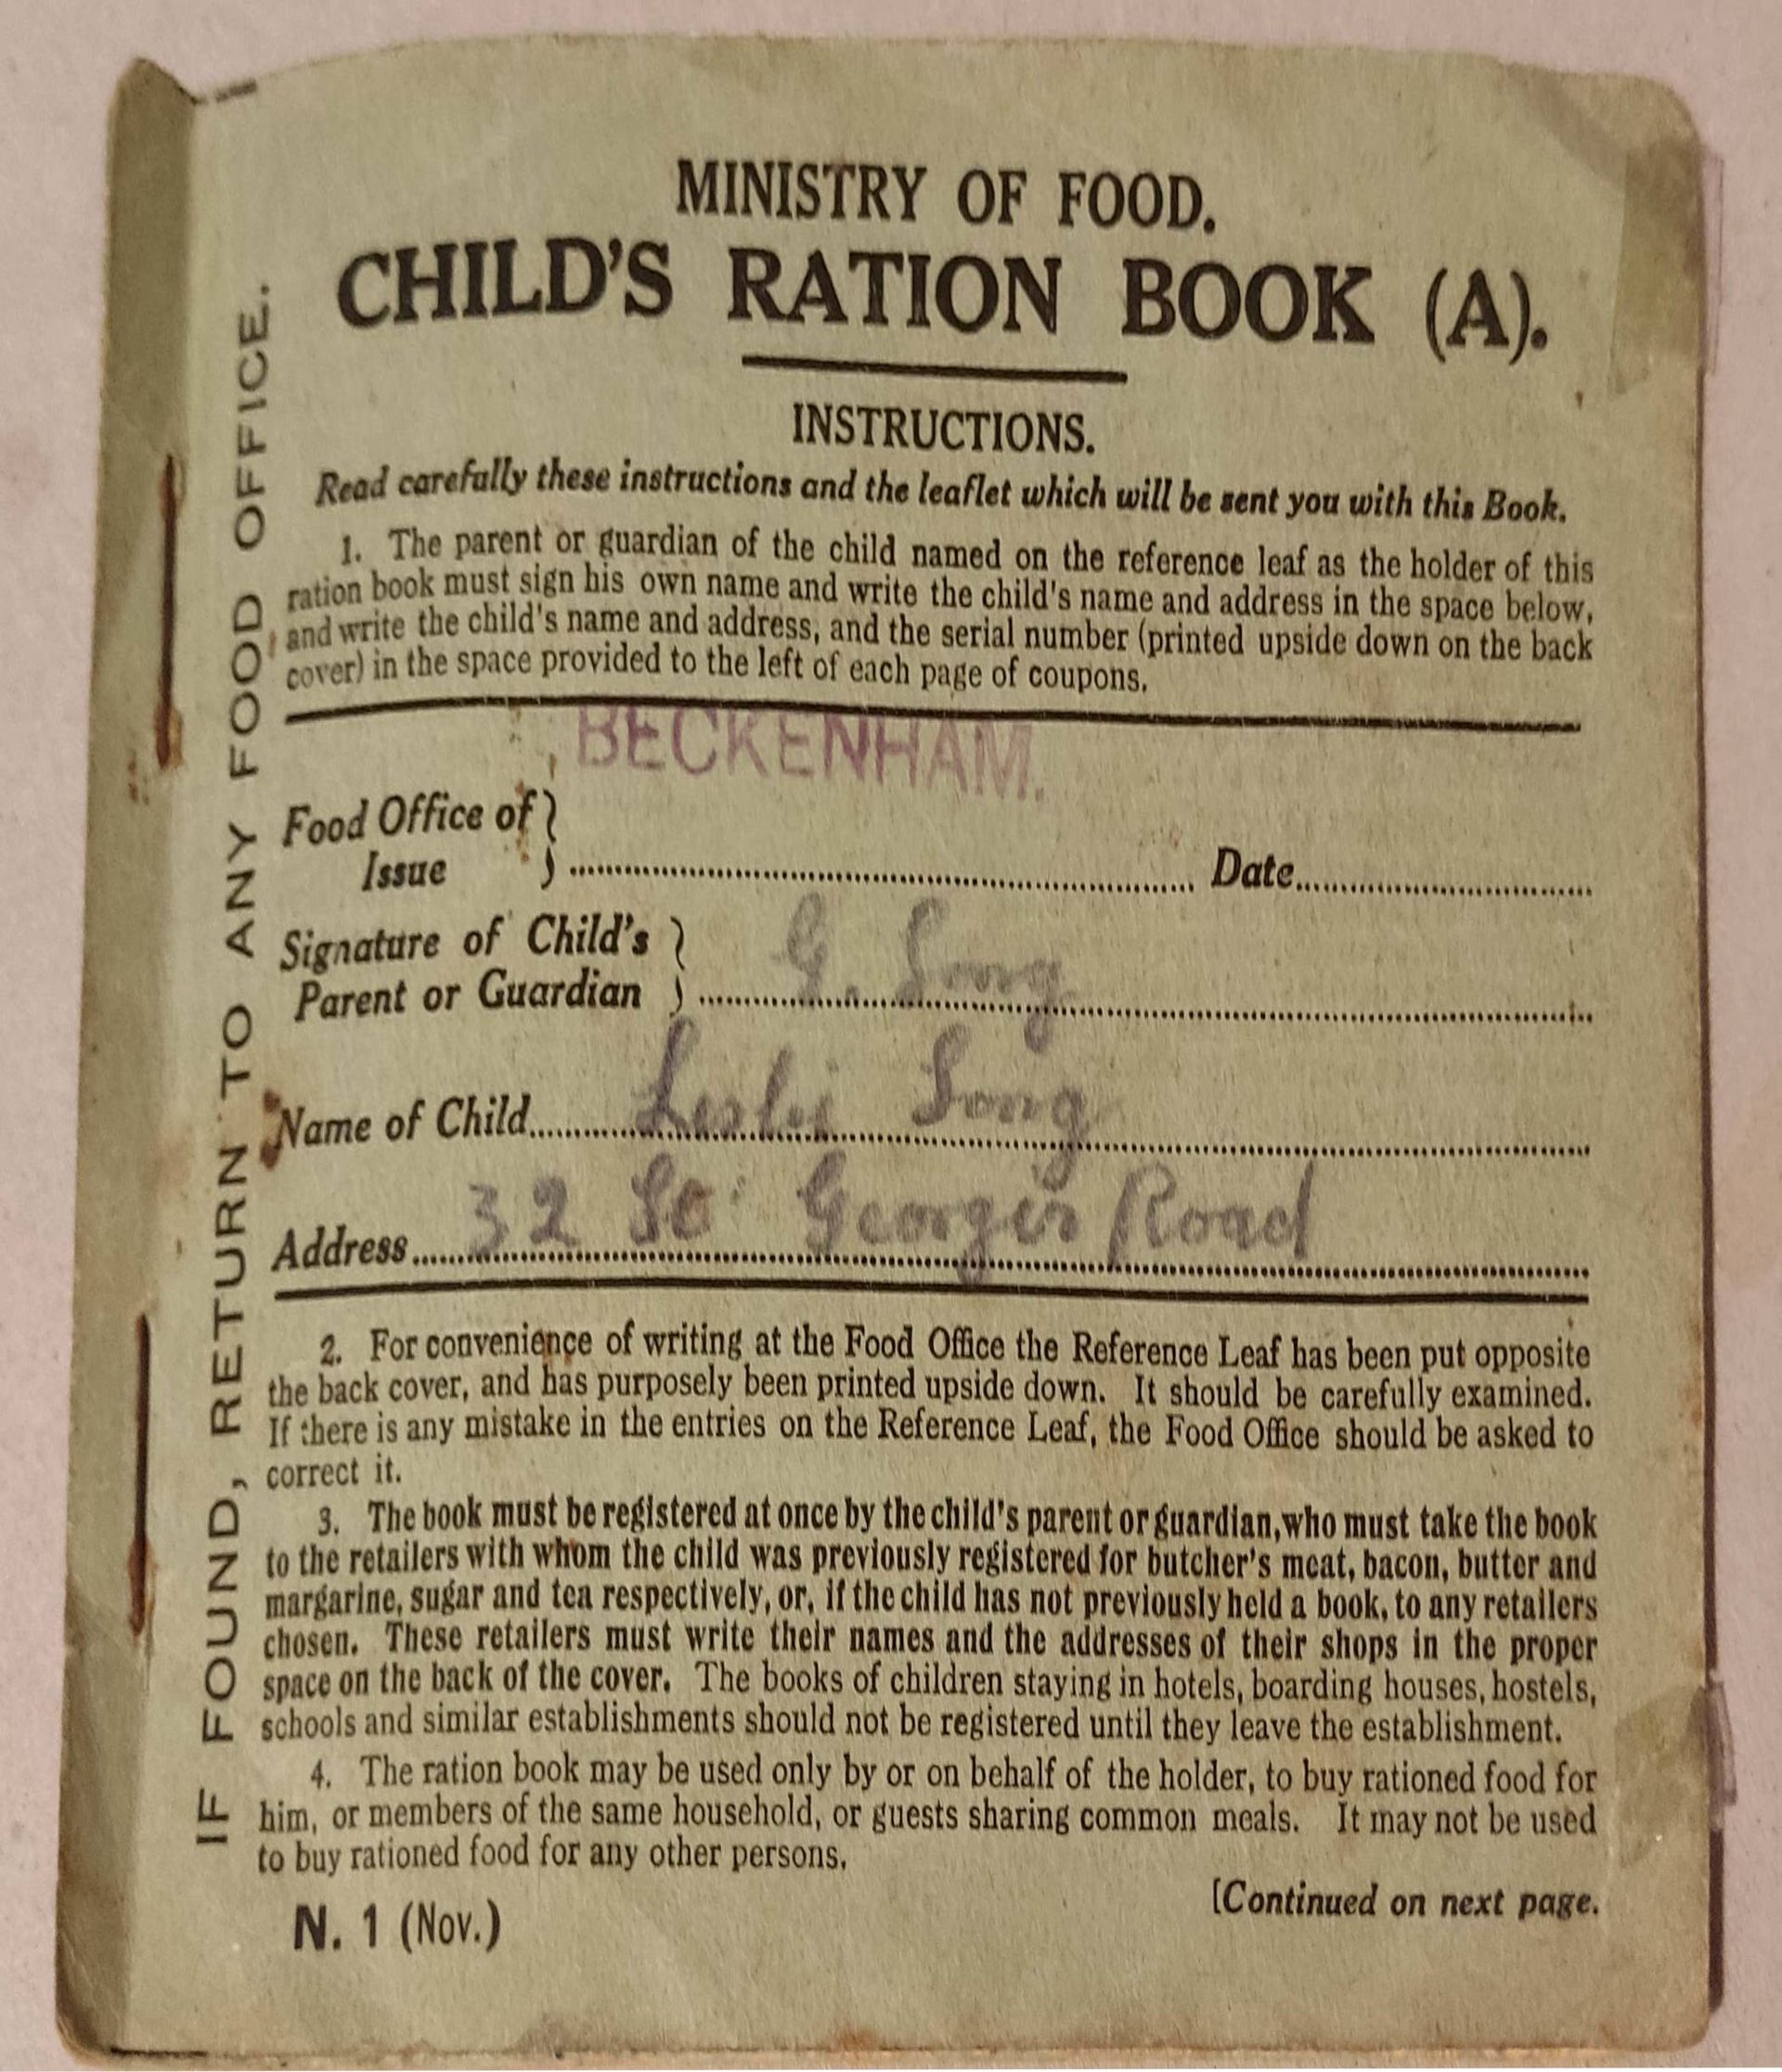 MINISTRY OF FOOD.
CHILD'S RATION BOOK (A).
INSTRUCTIONS.
Read carefully these instructions and the leaflet which will be sent you with this Book.
1. The parent or guardian of the child named on the reference leaf as the holder of this
ration book must sign his own name and write the child's name and address in the space below,
and write the child's name and address, and the serial number (printed upside down on the back
cover) in the space provided to the left of each page of coupons.
BECKENHAM.
Food Office of }
Issue } Date
Signature of Child's }
Parent or Guardian } G. Song
Name of Child Leslie Song
Address 32 St. George's Road
2. For convenience of writing at the Food Office the Reference Leaf has been put opposite
the back cover, and has purposely been printed upside down. It should be carefully examined.
If there is any mistake in the entries on the Reference Leaf, the Food Office should be asked to
correct it.
3. The book must be registered at once by the child's parent or guardian, who must take the book
to the retailers with whom the child was previously registered for butcher's meat, bacon, butter and
margarine, sugar and tea respectively, or, if the child has not previously held a book, to any retailers
chosen. These retailers must write their names and the addresses of their shops in the proper
space on the back of the cover. The books of children staying in hotels, boarding houses, hostels,
schools and similar establishments should not be registered until they leave the establishment.
4. The ration book may be used only by or on behalf of the holder, to buy rationed food for
him, or members of the same household, or guests sharing common meals. It may not be used
to buy rationed food for any other persons.
[Continued on next page.
N. 1 (Nov.)
IF FOUND, RETURN TO ANY FOOD OFFICE.